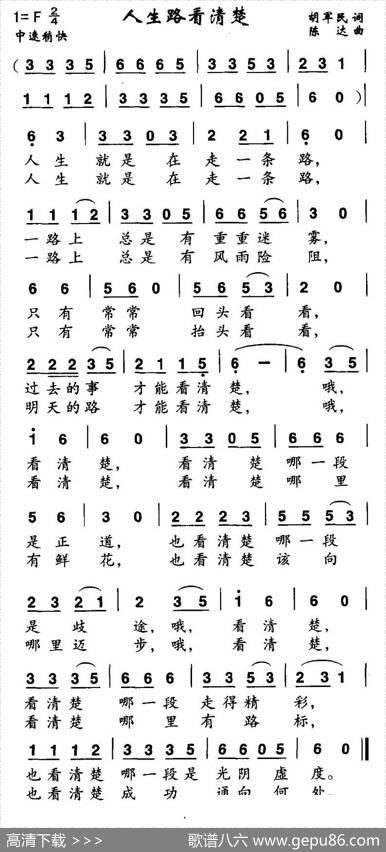 1=F 2/4 人生路看清楚 胡军民 词
中速稍快 陈达 曲
( 3 3 3 5 | 6 6 6 5 | 3 3 3 5 | 6 6 6 5 | 3 3 3 5 | 2 3 1 |
1 1 1 2 | 3 3 3 5 | 6 6 0 5 | 6 0 ) |
6 3 | 3 3 0 3 | 2 2 1 | 6 0 |
人生 就是 在 走 一条 路,
人生 就是 在 走 一条 路,
1 1 1 2 | 3 3 0 5 | 6 6 5 6 | 3 0 |
一路上 总是 有 重重迷 雾,
一路上 总是 有 风雨险 阻,
6 6 | 5 6 0 | 5 6 5 3 | 2 0 |
只有 常常 回头看 看,
只有 常常 抬头看 看,
2 2 2 3 5 | 2 1 1 5 | 6 – | 6 3 5 |
过去的事 才能看清 楚, 哦,
明天的路 才能看清 楚, 哦,
1 6 | 6 0 | 3 3 0 5 | 6 6 6 |
看清 楚, 看清 楚 哪一段
看清 楚, 看清 楚 哪里
5 6 | 3 0 | 2 2 2 3 | 5 5 5 3 |
是正 道, 也看清楚 哪一段
有鲜 花, 也看清楚 该向
2 3 2 1 | 2 3 5 | 1 6 | 6 0 |
是歧 途, 哦, 看清 楚,
哪里迈 步, 哦, 看清 楚,
3 3 3 5 | 6 6 6 5 | 3 3 5 3 | 2 3 1 |
看清楚 哪一段 走得精 彩,
看清楚 哪里有 路标,
1 1 1 2 | 3 3 3 5 | 6 6 0 5 | 6 0 ‖
也看清楚 哪一段是 光阴 虚 度。
也看清楚 成功 通向 何 处。
高清下载 >>> 歌谱八六 www.gepu86.com